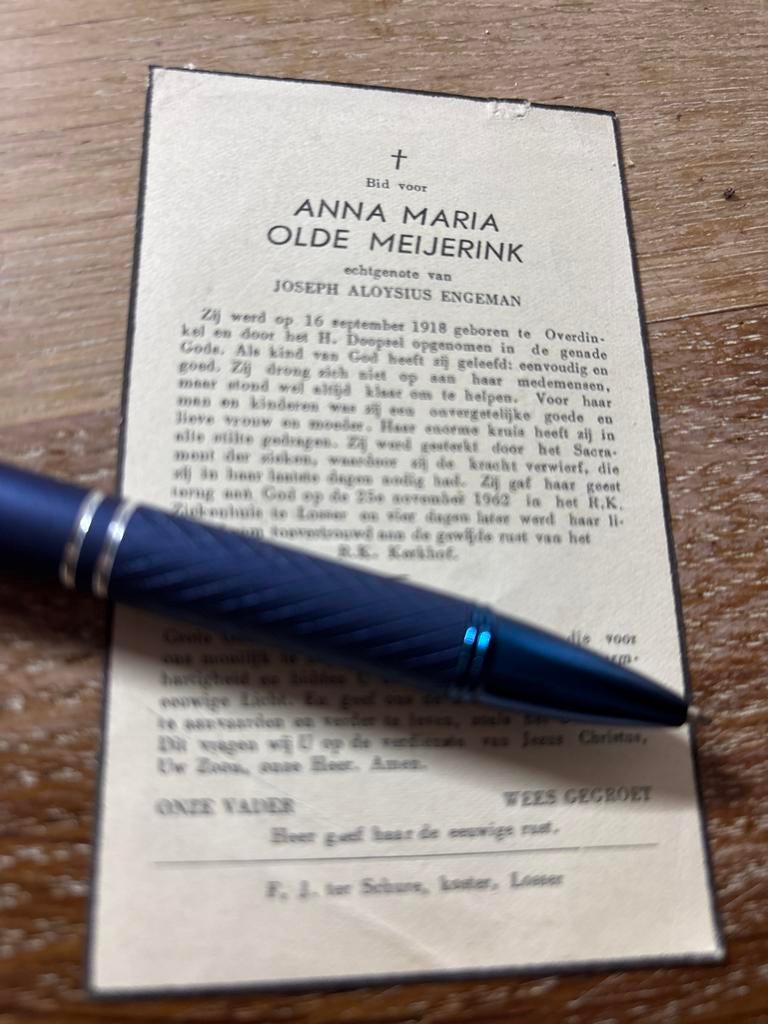 Bid voor
ANNA MARIA
OLDE MEIJERINK
echtgenote van
JOSEPH ALOYSIUS ENGEMAN
Zij werd op 16 september 1918 geboren te Overdin-
kel en door het H. Doopsel opgenomen in de genade
Gods. Als kind van God heeft zij geleefd: eenvoudig en
goed. Zij drong zich niet op aan haar medemensen,
maar stond wel altijd klaar om te helpen. Voor haar
man en kinderen was zij een onvergetelijke goede en
lieve vrouw en moeder. Haar enorme kruis heeft zij in
alle stilte gedragen. Zij werd gesterkt door het Sacra-
ment der zieken, waardoor zij de kracht verwierf, die
zij in haar laatste dagen nodig had. Zij gaf haar geest
terug aan God op de 25e november 1962 in het R.K.
Ziekenhuis te Losser en vier dagen later werd haar li-
toevertrouwd aan de gewijde rust van het
R.K. Kerkhof.
die voor
ons moeilijk te
bartigheid en bidden U
eeuwige Licht. En geef ons de
te aanvaarden en verder te leven, zoals het
Dit vragen wij U op de verdienste van Jezus Christus,
Uw Zoon, onze Heer. Amen.
ONZE VADER WEES GEGROET
Heer geef haar de eeuwige rust.
F. J. ter Schure, koster, Losser